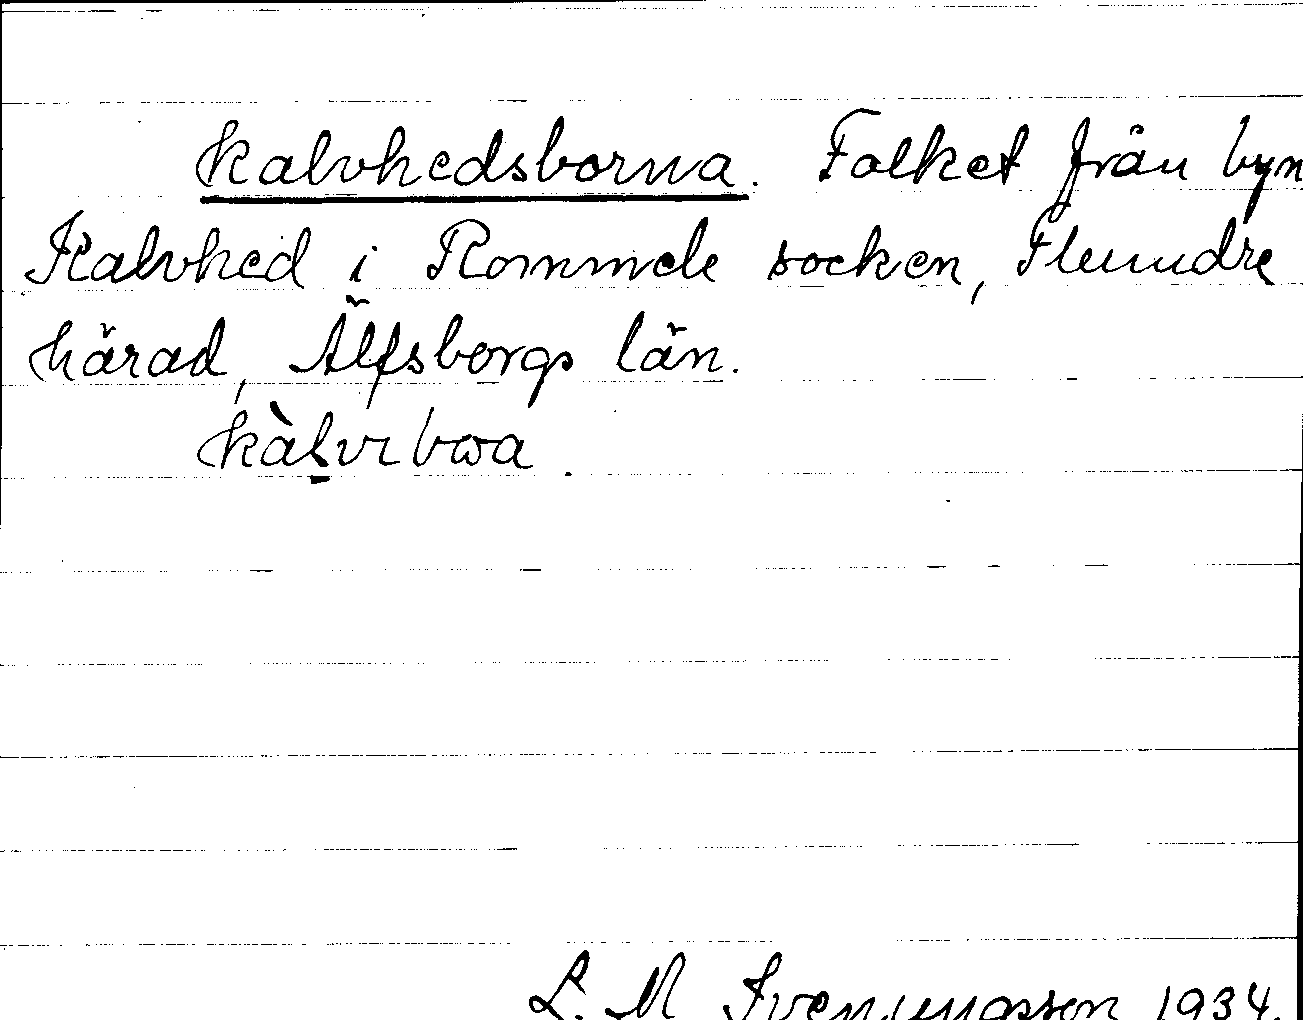 Kalvhedsborna. Folket från byn
Kalvhed i Rommele socken, Flundre
härad, Älfsborgs län.
L. M. Svenungsson 1934.